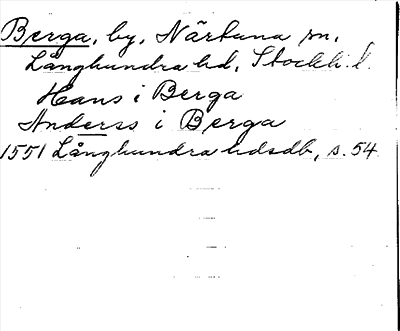 Berga, by, Närtuna sn,
Långhundra hd, Stockh. l.
Hans i Berga
Anderss i Berga
1551 Långhundra hdsdb, s. 54